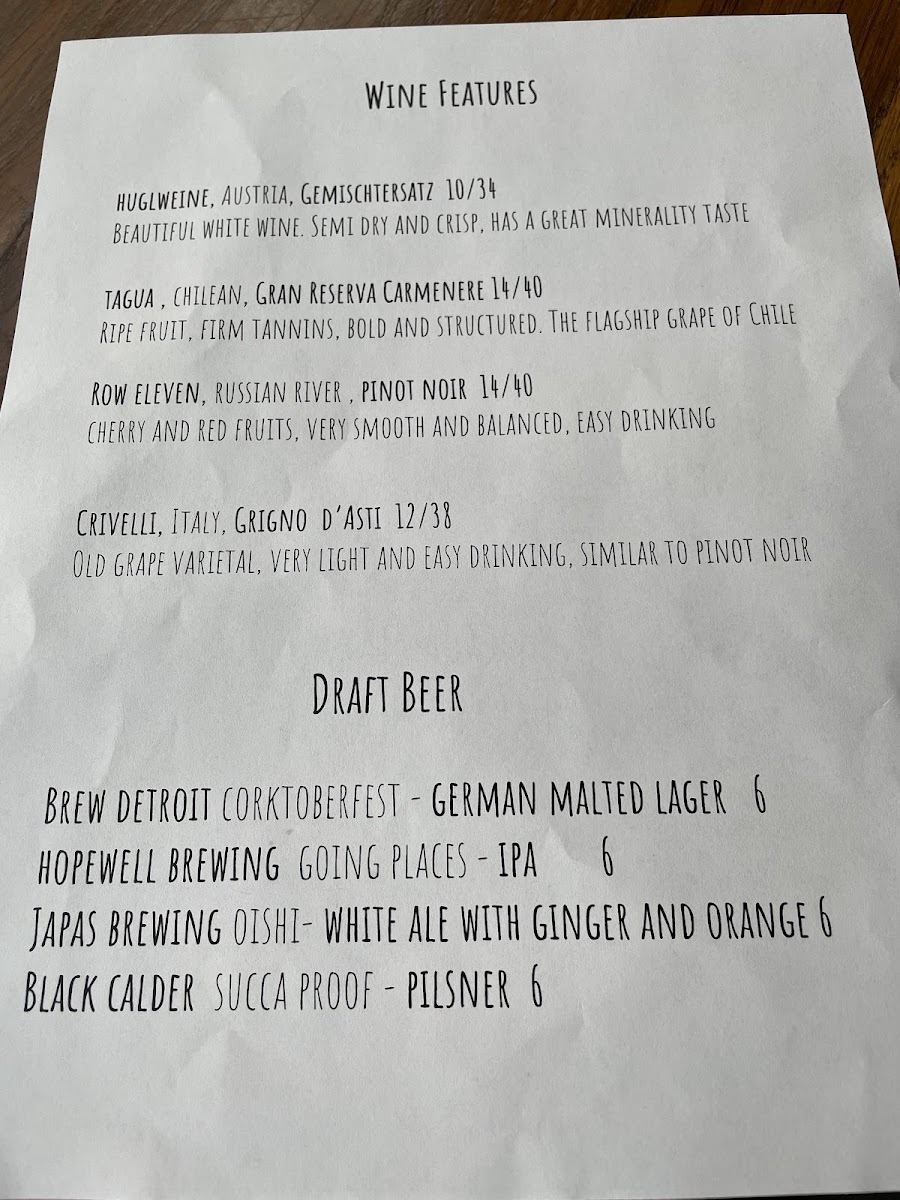 Wine Features
huglweine, Austria, Gemischtersatz 10/34
Beautiful white wine. Semi dry and crisp, has a great minerality taste
tagua , chilean, Gran Reserva Carmenere 14/40
Ripe fruit, firm tannins, bold and structured. The flagship grape of Chile
Row eleven, russian river , pinot noir 14/40
cherry and red fruits, very smooth and balanced, easy drinking
Crivelli, Italy, Grigno d'Asti 12/38
Old grape varietal, very light and easy drinking, similar to pinot noir
Draft Beer
Brew detroit corktoberfest - german malted lager 6
hopewell brewing going places - IPA 6
Japas brewing oishi- white ale with ginger and orange 6
Black calder succa proof - pilsner 6